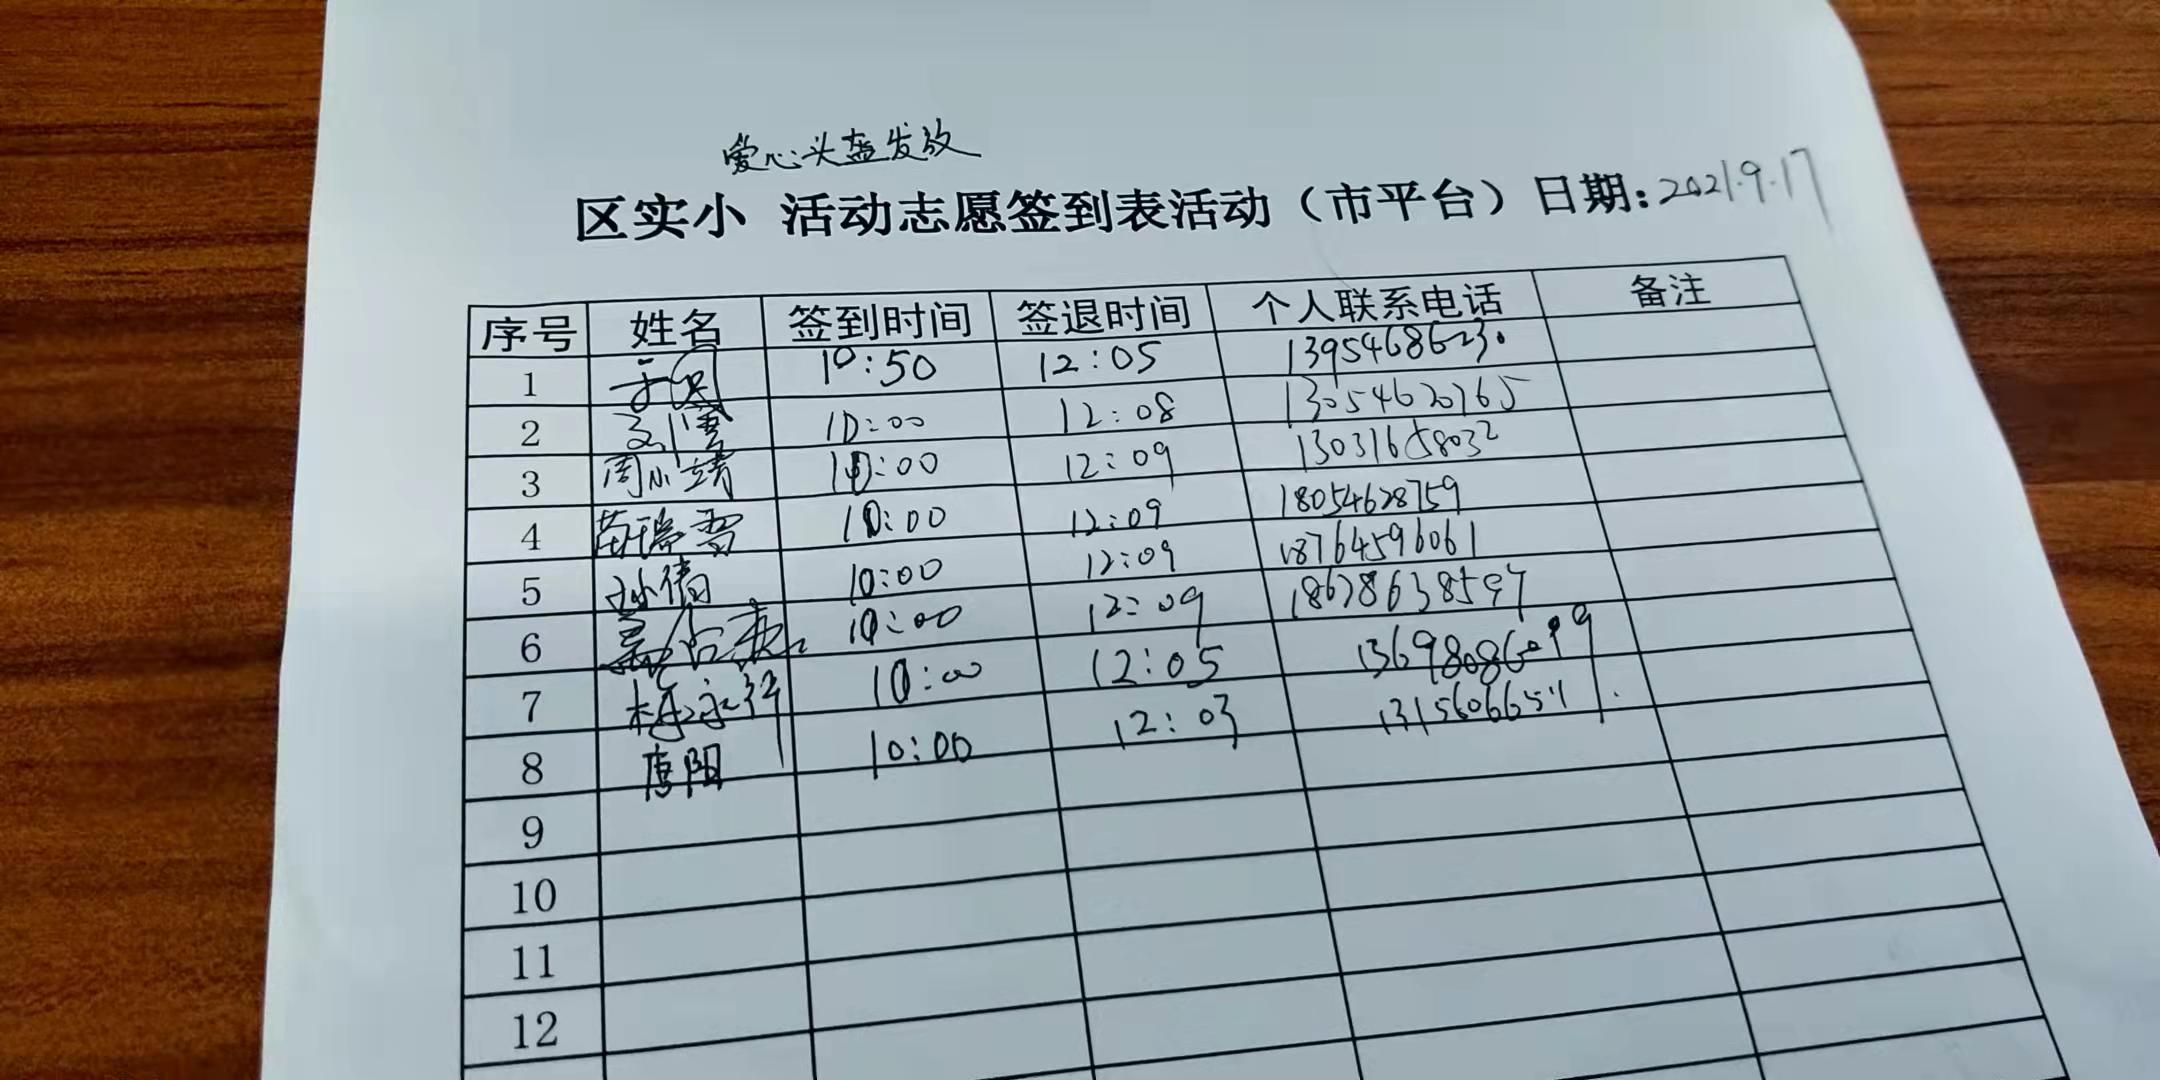 爱心头盔发放
区实小 活动志愿签到表活动（市平台）日期:2021.9.17
序号 姓名 签到时间 签退时间 个人联系电话 备注
1 10:50 12:05 13954686230
2 刘雪 10:00 12:08 13054620765
3 周小靖 10:00 12:09 13031658032
4 苗瑞雪 10:00 12:09 18054628759
5 孙倩 10:00 12:09 18764596061
6 10:00 12:09
7 10:00 12:05
8 唐阳 10:00 12:03
9
10
11
12